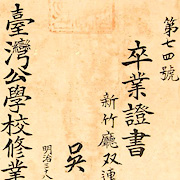 第七四號
卒業證書
新竹廳双連
吳
明治三十八
臺灣公學校修業